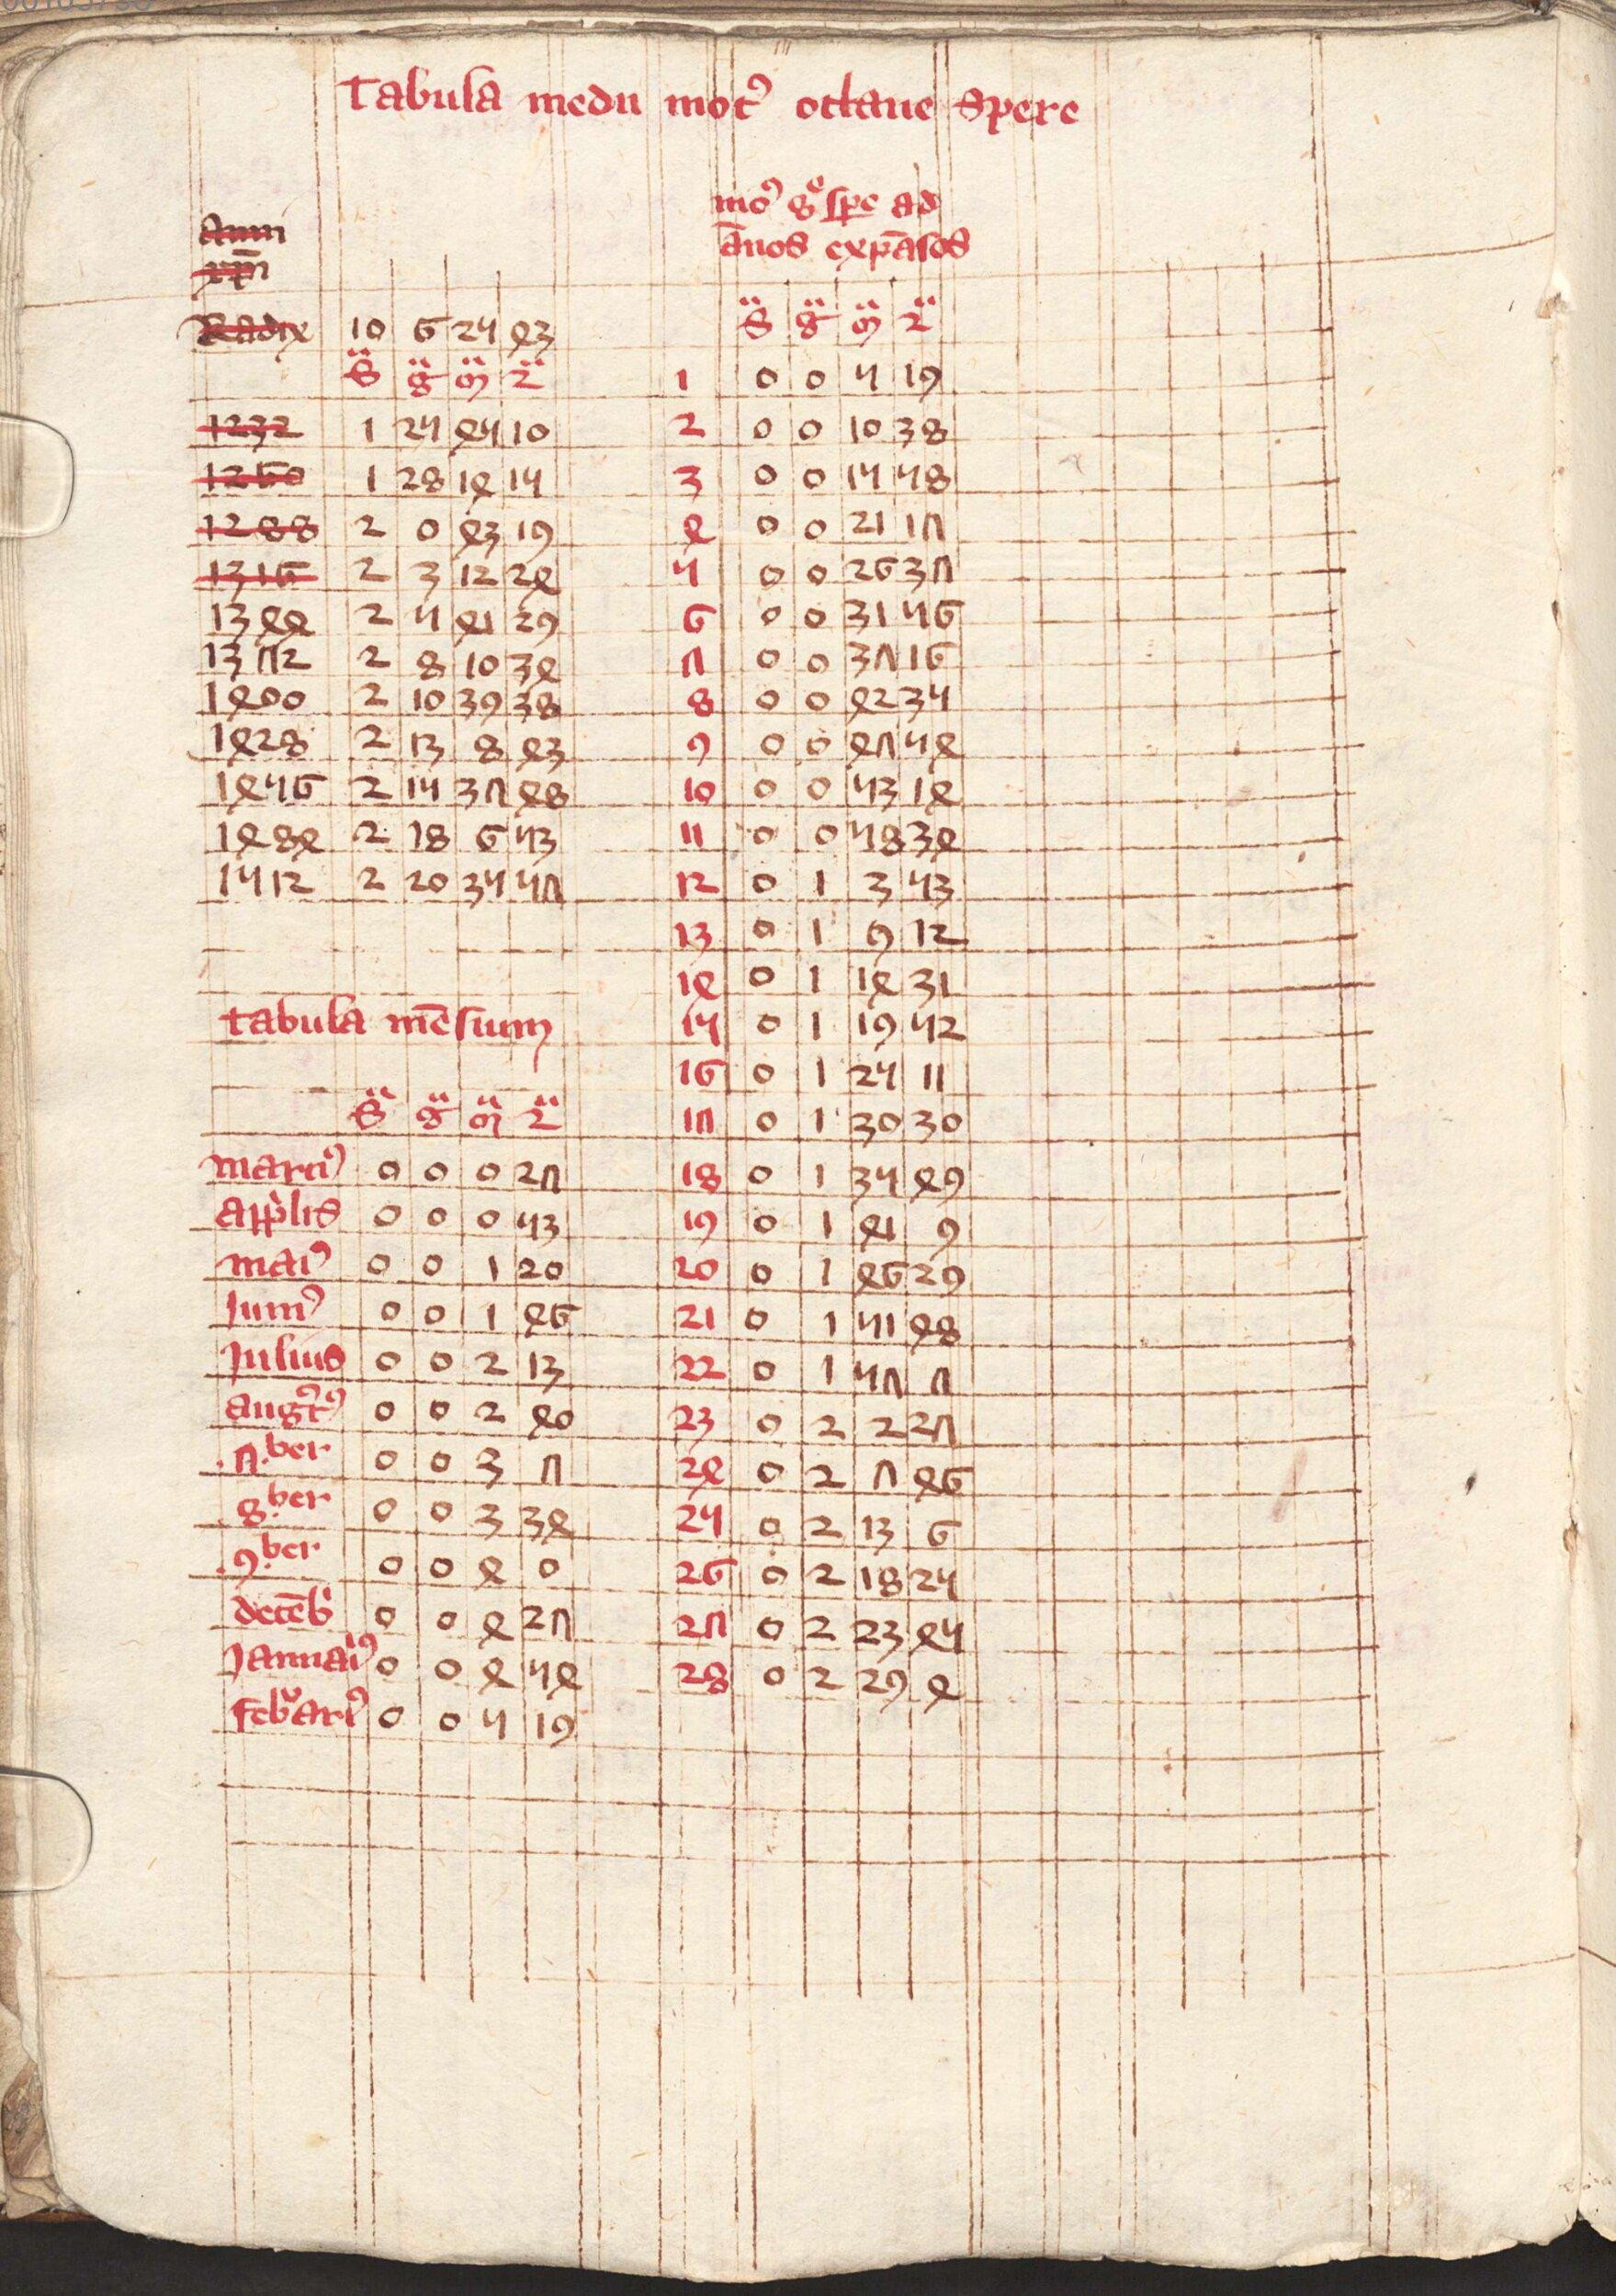 Tabula medii mot9 octaue Spere
Anni
xp̄i
Radix 10 6 25 43
S̈ g̈ m̈ 2̈
1232 1 25 45 10
1260 1 28 14 15
1288 2 0 43 19
1316 2 3 12 24
1344 2 5 41 29
1372 2 8 10 34
1400 2 10 39 38
1428 2 13 8 43
1456 2 15 37 48
1484 2 18 6 53
1512 2 20 35 57
Tabula mēsium
S̈ g̈ m̈ 2̈
marci9 0 0 0 27
app̲lis 0 0 0 53
mai9 0 0 1 20
Juni9 0 0 1 46
Julius 0 0 2 13
augt9 0 0 2 40
.7.ber 0 0 3 7
.8.ber 0 0 3 34
.9.ber 0 0 4 0
decēb 0 0 4 27
Januai9 0 0 4 54
febari9 0 0 5 19
mo9 8e spe ad
ānos expāsos
S̈ g̈ m̈ 2̈
1 0 0 5 19
2 0 0 10 38
3 0 0 15 58
4 0 0 21 17
5 0 0 26 37
6 0 0 31 56
7 0 0 37 16
8 0 0 42 35
9 0 0 47 54
10 0 0 53 14
11 0 0 58 34
12 0 1 3 53
13 0 1 9 12
14 0 1 14 31
15 0 1 19 52
16 0 1 25 11
17 0 1 30 30
18 0 1 35 49
19 0 1 41 9
20 0 1 46 29
21 0 1 51 48
22 0 1 57 7
23 0 2 2 27
24 0 2 7 46
25 0 2 13 6
26 0 2 18 25
27 0 2 23 45
28 0 2 29 4